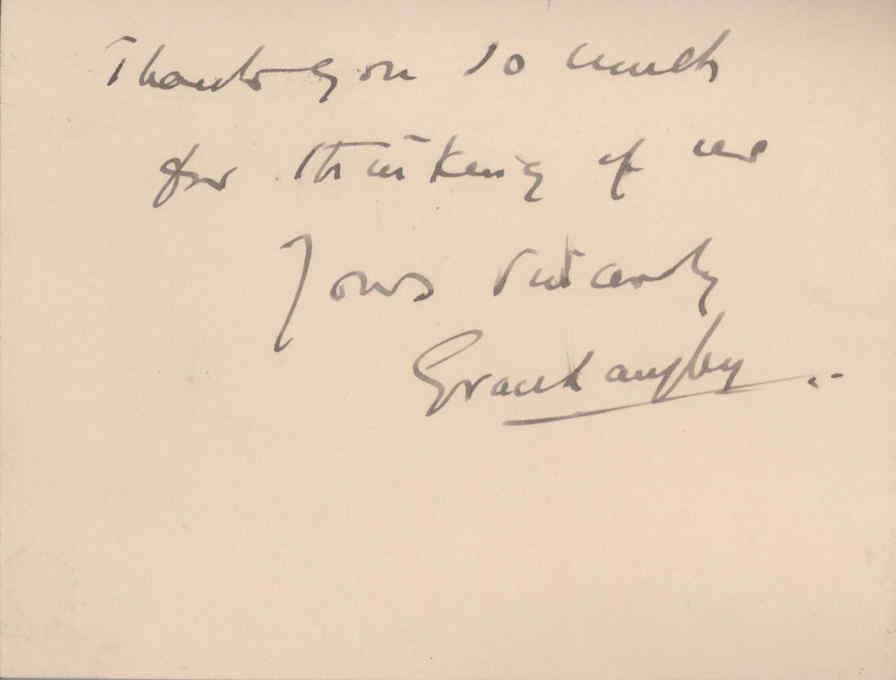 Thank you so much
for thinking of me
Yours sincerely